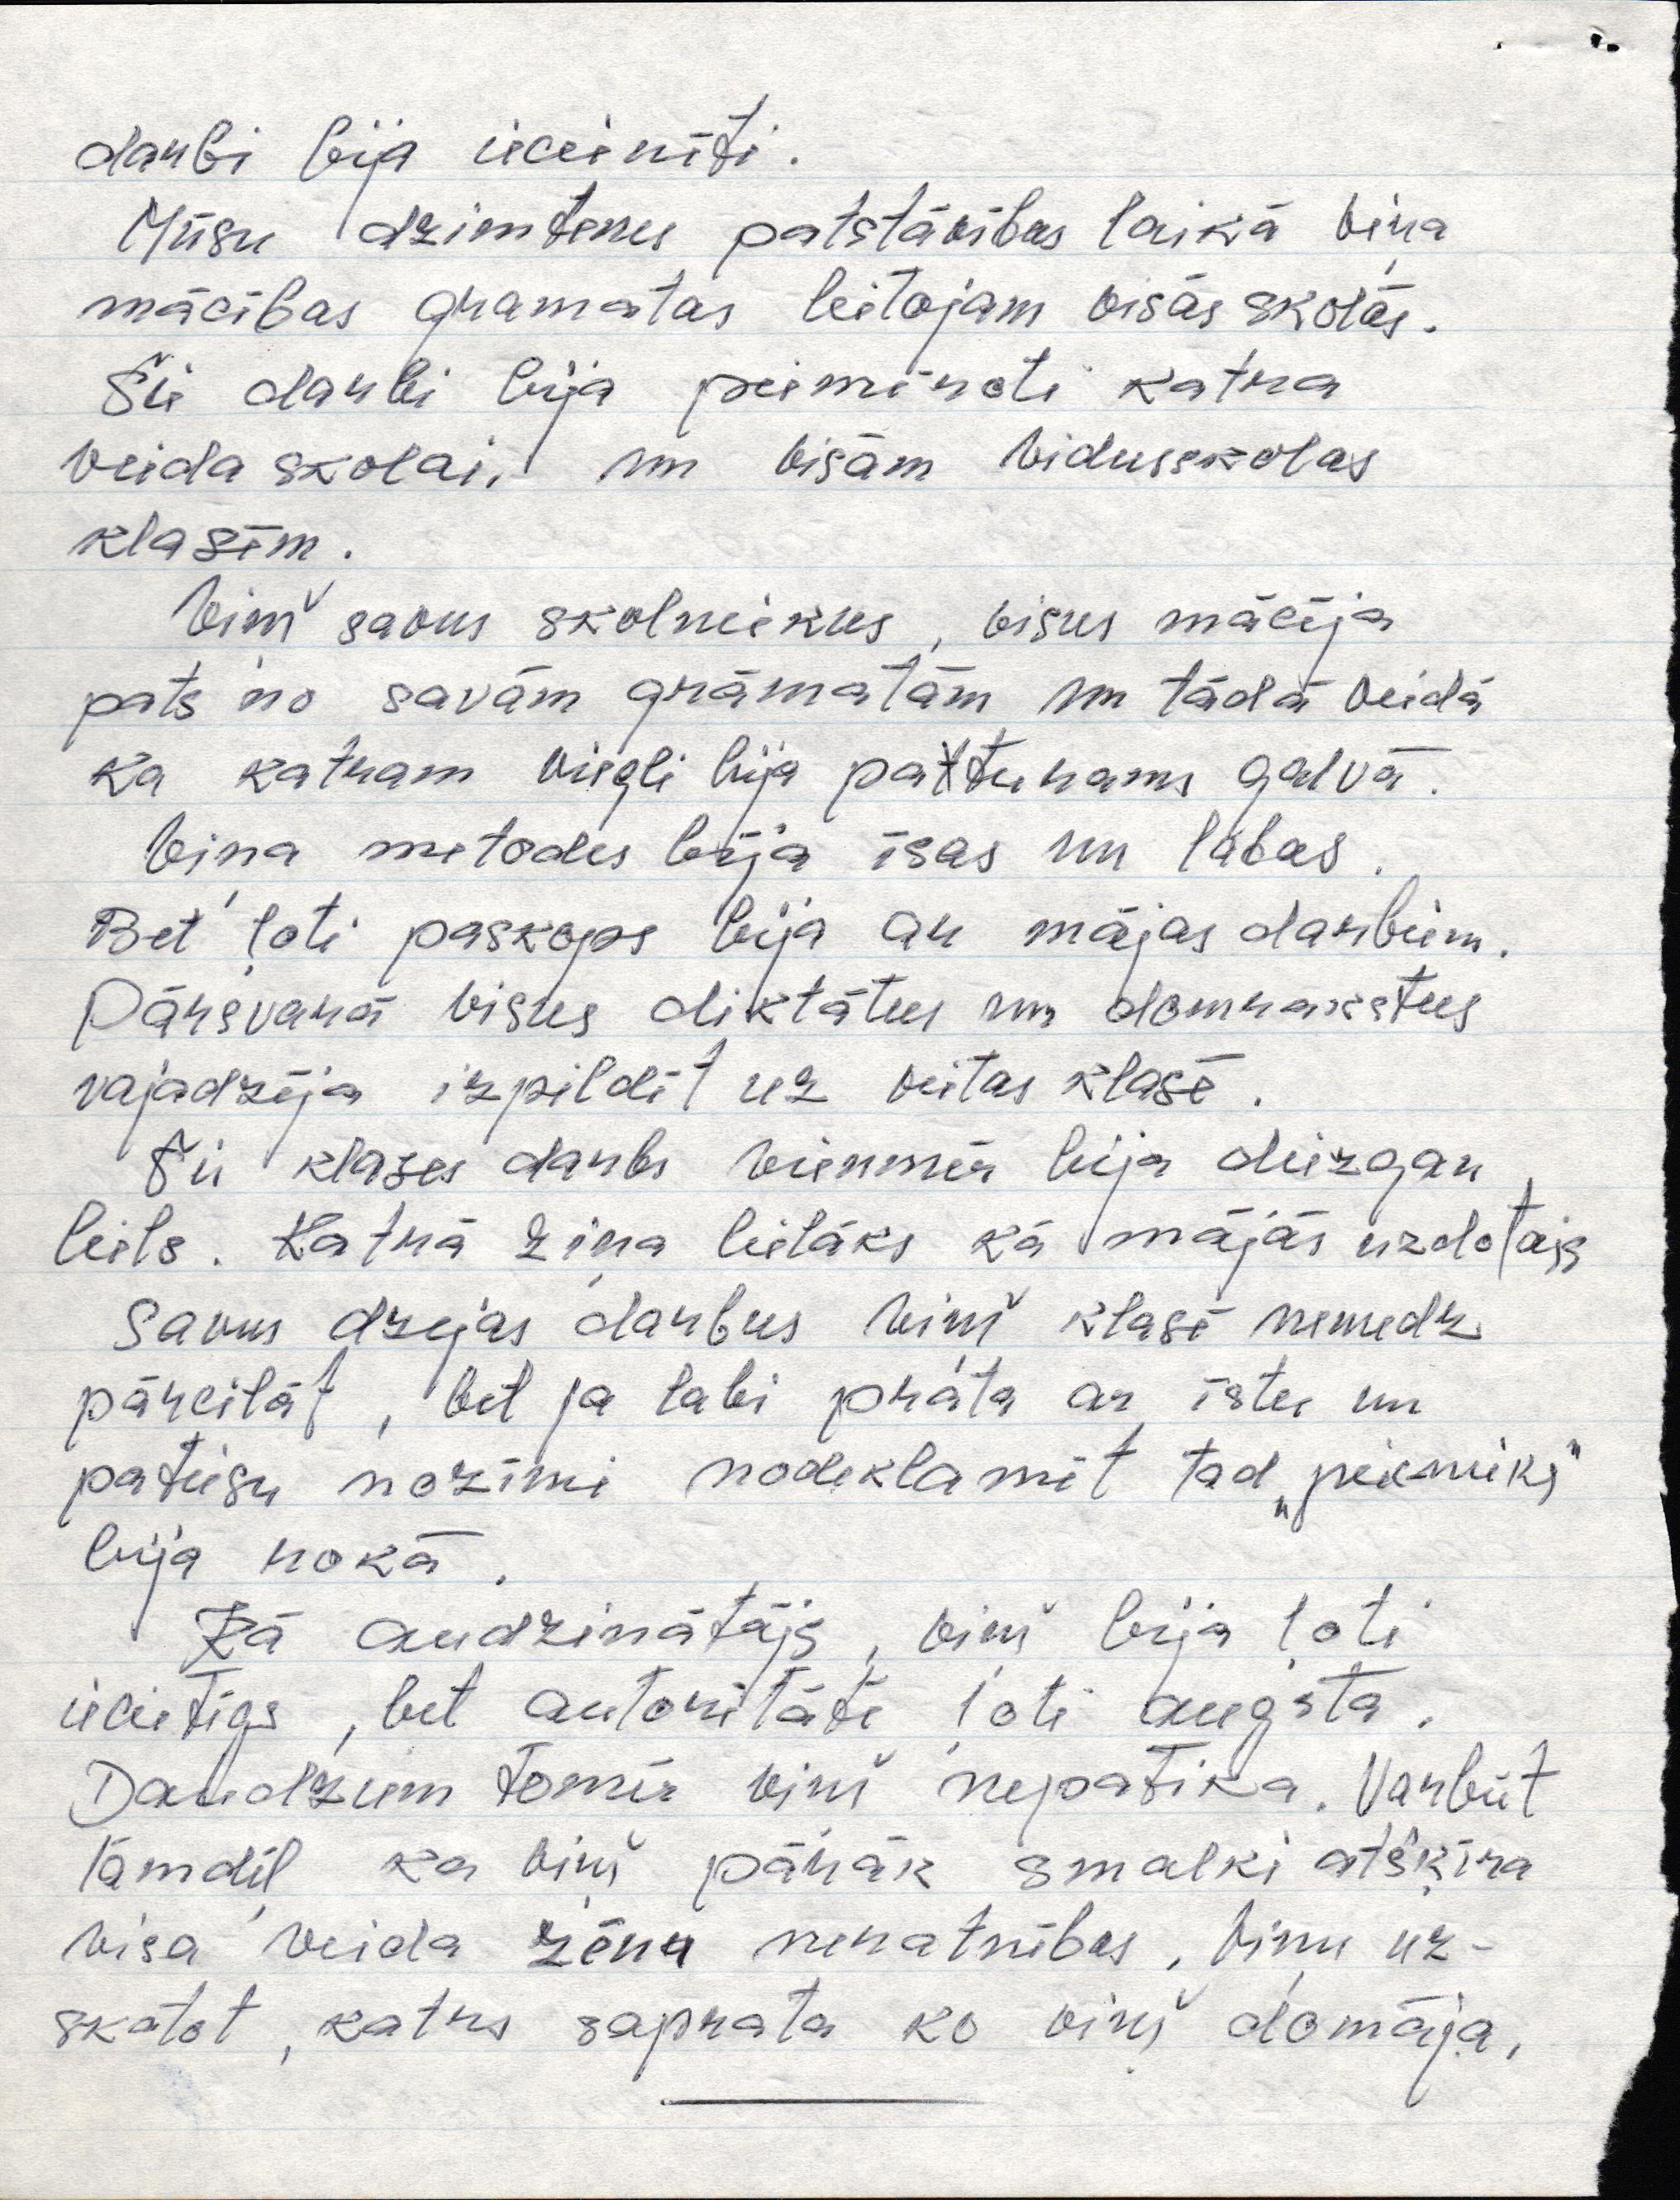 darbi bija iecienīti.
Mūsu dzimtenes patstāvības laikā viņa
mācības gramatas lietojam visās skolās.
Šie darbi bija piemēroti katra
veida skolai, un visām vidusskolas
klasēm.
Viņš savus skolniekus, visus mācīja
pats no savām grāmatām un tādā veidā
ka katram viegli bija patturams galvā.
Viņa metodes bija īsas un labas.
Bet ļoti paskops bija ar mājas darbiem.
Pārsvarā visus diktātus un domrakstus
vajadzēja izpildīt uz vietas klasē.
Šii klases darbs vienmēr bija diezgan
liels. Katrā ziņa lielāks kā mājās uzdotais
Savus dzejas darbus viņš klasē nemedz
pārcilāt, bet ja labi prāta ar īstu un
patiesu nozīmi nodeklamēt tad „piecnieks"
bija rokā.
Kā audzinātājs, viņš bija ļoti
iecietīgs, bet autoritāte ļoti augsta.
Daudziem tomēr viņš nepatika. Varbūt
tāmdēļ ka viņš pārāk smalki atšķīra
visa veida zēnu nerātnības. Viņu uz-
skatot, katrs saprata ko viņš domāja,